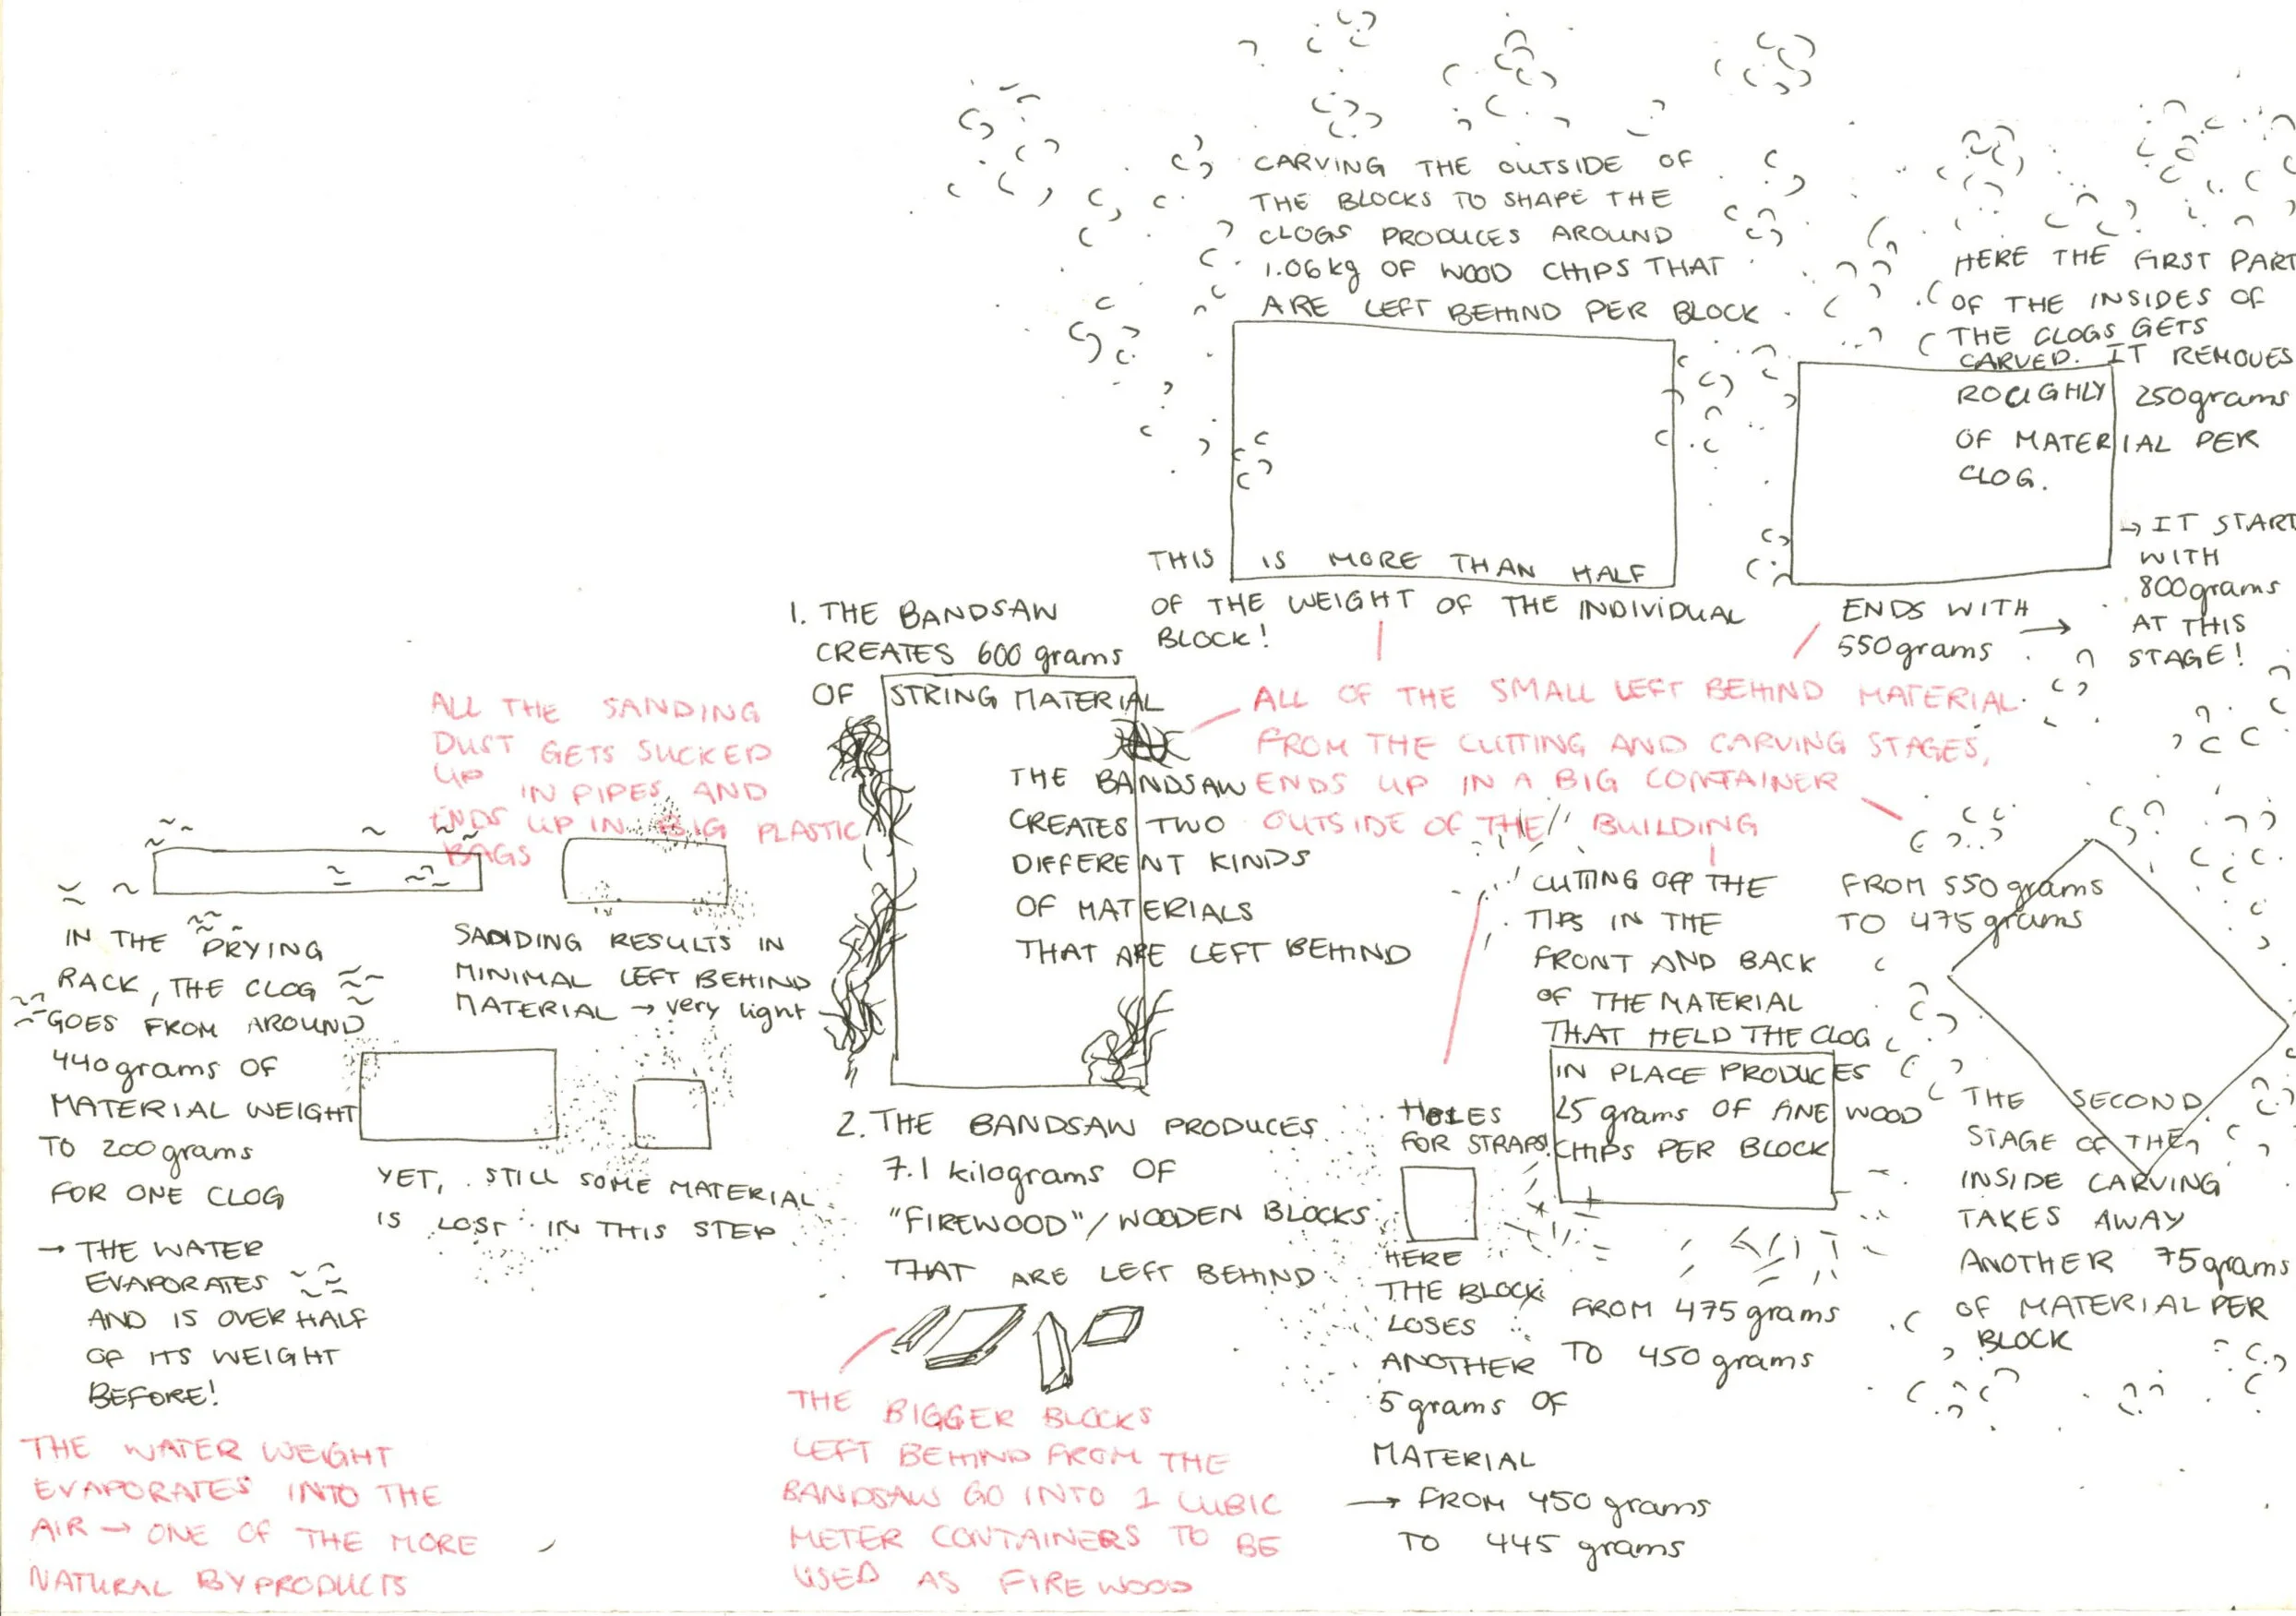 CARVING THE OUTSIDE OF
THE BLOCKS TO SHAPE THE
CLOGS PRODUCES AROUND
1.06kg OF WOOD CHIPS THAT
ARE LEFT BEHIND PER BLOCK
THIS IS MORE THAN HALF
OF THE WEIGHT OF THE INDIVIDUAL
BLOCK!
HERE THE FIRST PART
OF THE INSIDES OF
THE CLOGS GETS
CARVED. IT REMOVES
ROUGHLY 250grams
OF MATERIAL PER
CLOG.
→ IT START
WITH
800grams
AT THIS
STAGE!
ENDS WITH →
550grams
1. THE BANDSAW
CREATES 600 grams
OF STRING MATERIAL
THE BANDSAW
CREATES TWO
DIFFERENT KINDS
OF MATERIALS
THAT ARE LEFT BEHIND
ALL OF THE SMALL LEFT BEHIND MATERIAL
FROM THE CUTTING AND CARVING STAGES,
ENDS UP IN A BIG CONTAINER
OUTSIDE OF THE BUILDING
ALL THE SANDING
DUST GETS SUCKED
UP IN PIPES, AND
ENDS UP IN BIG PLASTIC
BAGS
IN THE DRYING
RACK, THE CLOG
GOES FROM AROUND
440grams OF
MATERIAL WEIGHT
TO 200grams
FOR ONE CLOG
→ THE WATER
EVAPORATES
AND IS OVER HALF
OF ITS WEIGHT
BEFORE!
THE WATER WEIGHT
EVAPORATES INTO THE
AIR → ONE OF THE MORE
NATURAL BYPRODUCTS
SANDING RESULTS IN
MINIMAL LEFT BEHIND
MATERIAL → very light
YET, STILL SOME MATERIAL
IS LOST IN THIS STEP
2. THE BANDSAW PRODUCES
7.1 kilograms OF
"FIREWOOD"/WOODEN BLOCKS
THAT ARE LEFT BEHIND
THE BIGGER BLOCKS
LEFT BEHIND FROM THE
BANDSAW GO INTO 1 CUBIC
METER CONTAINERS TO BE
USED AS FIREWOOD
HOLES
FOR STRAPS!
HERE
THE BLOCK
LOSES
ANOTHER
5 grams OF
MATERIAL
→ FROM 450 grams
TO 445 grams
CUTTING OFF THE
TIPS IN THE
FRONT AND BACK
OF THE MATERIAL
THAT HELD THE CLOG
IN PLACE PRODUCES
25 grams OF FINE WOOD
CHIPS PER BLOCK
FROM 475 grams
TO 450 grams
FROM 550 grams
TO 475 grams
THE SECOND
STAGE OF THE
INSIDE CARVING
TAKES AWAY
ANOTHER 75grams
OF MATERIAL PER
BLOCK